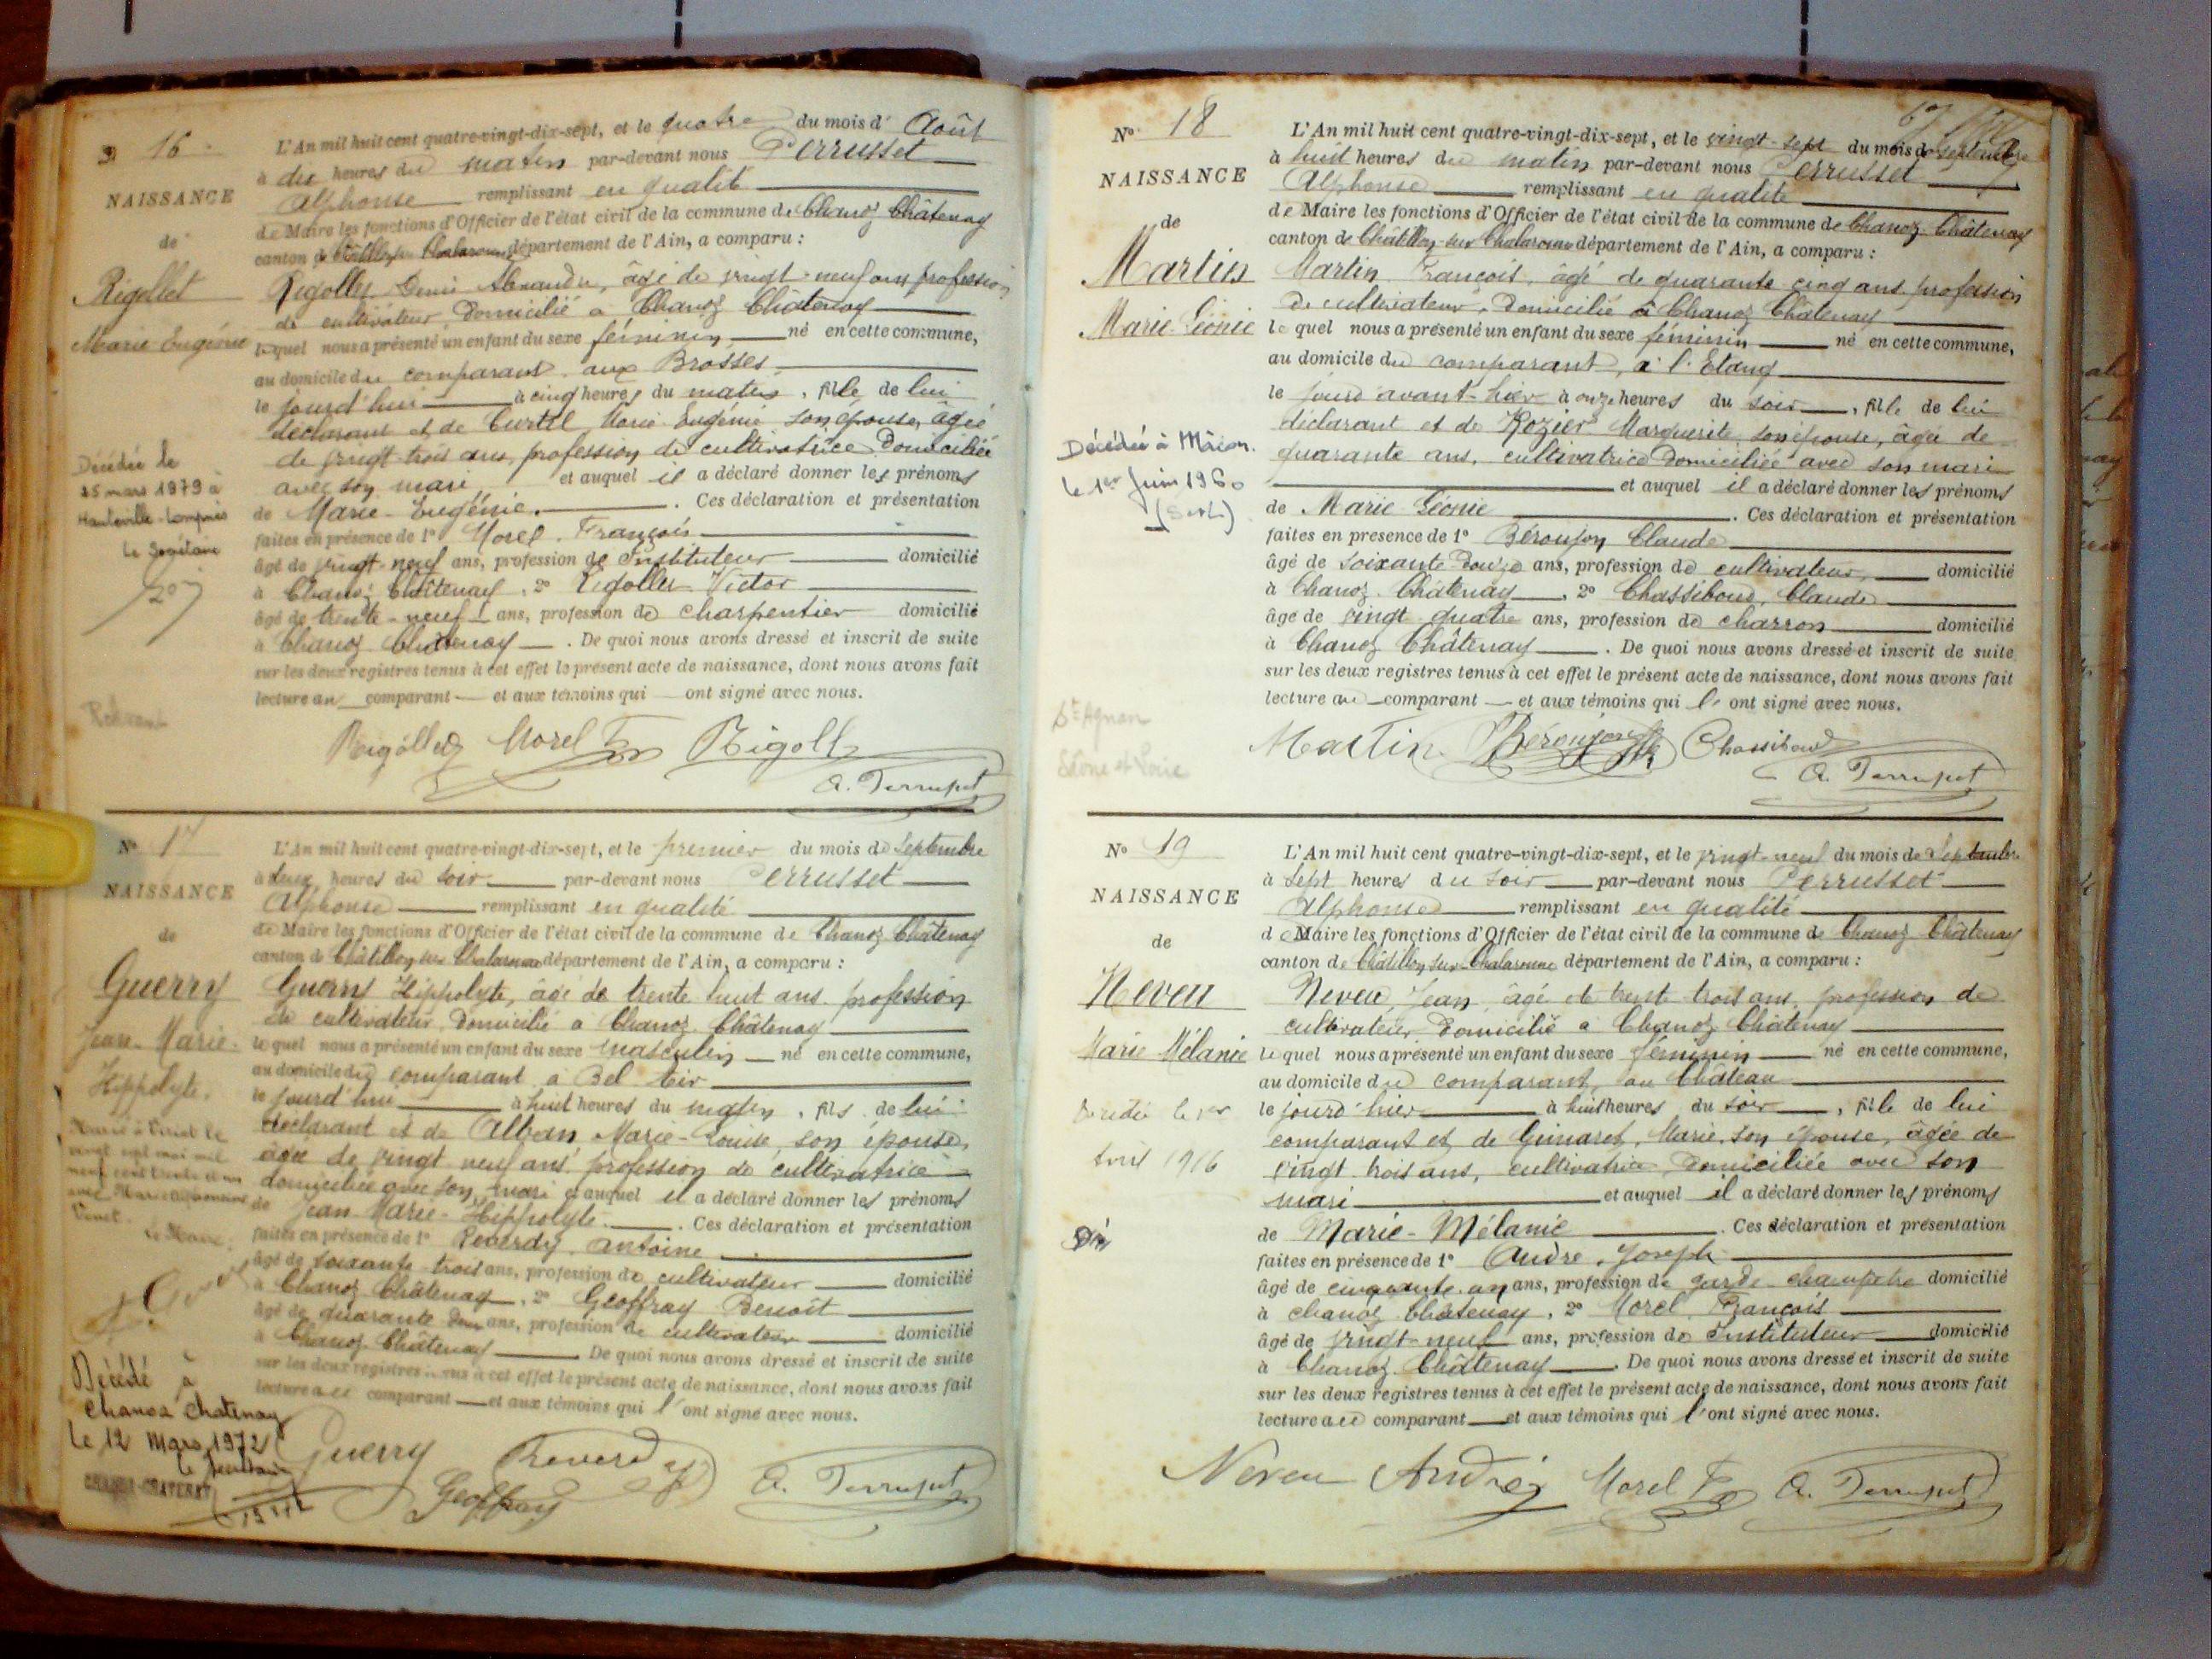 16
NAISSANCE
de
Rigollet
Marie Eugénie
Décédée le
25 mars 1979 à
Hauteville-Lompnes
Le Secrétaire
L'An mil huit cent quatre-vingt-dix-sept, et le quatre du mois d'Août
à dix heures du matin par-devant nous Perrusset
Alphonse remplissant en qualité
de Maire les fonctions d'Officier de l'état civil de la commune de Chanoz Châtenay
canton de Châtillon sur Chalaronne département de l'Ain, a comparu :
Rigollet Denis Alexandre, âgé de vingt-neuf ans profession
de cultivateur, domicilié à Chanoz Châtenay
lequel nous a présenté un enfant du sexe féminin né en cette commune,
au domicile du comparant aux Brosses,
le jourd'hui à cinq heures du matin, fille de lui
déclarant et de Curtil, Marie Eugénie son épouse, âgée
de vingt-trois ans, profession de cultivatrice domiciliée
avec son mari et auquel il a déclaré donner les prénoms
de Marie-Eugénie. Ces déclaration et présentation
faites en présence de 1° Morel, François
âgé de vingt-neuf ans, profession de Instituteur domicilié
à Chanoz Châtenay, 2° Rigollet Victor
âgé de trente-neuf ans, profession de charpentier domicilié
à Chanoz Châtenay. De quoi nous avons dressé et inscrit de suite
sur les deux registres tenus à cet effet le présent acte de naissance, dont nous avons fait
lecture au comparant et aux témoins qui ont signé avec nous.
Rigollet Morel F Rigollet
A. Perrusset
N° 17
NAISSANCE
de
Guerry
Jean-Marie-
Hippolyte.
Marié à Viriat le
vingt sept mai mil
neuf cent trente
avec Marie
Venet.
Le Maire,
Décédé à
Chanoz Chatenay
Le 12 Mars 1972
Le Secrétaire
CHANOZ-CHATENAY
L'An mil huit cent quatre-vingt-dix-sept, et le premier du mois de Septembre
à deux heures du soir par-devant nous Perrusset
Alphonse remplissant en qualité
de Maire les fonctions d'Officier de l'état civil de la commune de Chanoz Châtenay
canton de Châtillon sur Chalaronne département de l'Ain, a comparu :
Guerry Hippolyte, âgé de trente huit ans profession
de cultivateur, domicilié à Chanoz Châtenay
lequel nous a présenté un enfant du sexe masculin né en cette commune,
au domicile du comparant à Bel Air
le jourd'hui à huit heures du matin, fils de lui
déclarant et de Alban Marie-Louise, son épouse,
âgée de vingt neuf ans, profession de cultivatrice
domiciliée avec son mari et auquel il a déclaré donner les prénoms
de Jean-Marie-Hippolyte. Ces déclaration et présentation
faites en présence de 1° Reverdy, Antoine
âgé de soixante-trois ans, profession de cultivateur domicilié
à Chanoz Châtenay, 2° Geoffray Benoît
âgé de quarante deux ans, profession de cultivateur domicilié
à Chanoz Châtenay De quoi nous avons dressé et inscrit de suite
sur les deux registres tenus à cet effet le présent acte de naissance, dont nous avons fait
lecture au comparant et aux témoins qui l'ont signé avec nous.
Guerry Reverdy
Geoffray A. Perrusset
N° 18
NAISSANCE
de
Martin
Marie-Léonie
Décédée à Mâcon.
le 1er Juin 1960
(S-et-L)
St Agnan
Saône et Loire
L'An mil huit cent quatre-vingt-dix-sept, et le vingt-sept du mois de septembre
à huit heures du matin par-devant nous Perrusset
Alphonse remplissant en qualité
de Maire les fonctions d'Officier de l'état civil de la commune de Chanoz Châtenay
canton de Châtillon-sur Chalaronne département de l'Ain, a comparu :
Martin François, âgé de quarante cinq ans profession
de cultivateur, domicilié à Chanoz Châtenay
le quel nous a présenté un enfant du sexe féminin né en cette commune,
au domicile du comparant, à l'Etang
le jourd'avant-hier à onze heures du soir, fille de lui
déclarant et de Rozier Marguerite, son épouse, âgée de
quarante ans, cultivatrice domiciliée avec son mari
et auquel il a déclaré donner les prénoms
de Marie Léonie. Ces déclaration et présentation
faites en présence de 1° Béroujon Claude
âgé de soixante douze ans, profession de cultivateur, domicilié
à Chanoz Châtenay, 2° Chassiboud, Claude
âgé de vingt quatre ans, profession de charron domicilié
à Chanoz Châtenay. De quoi nous avons dressé et inscrit de suite
sur les deux registres tenus à cet effet le présent acte de naissance, dont nous avons fait
lecture au comparant et aux témoins qui l'ont signé avec nous.
Martin Béroujon Chassiboud
A. Perrusset
N° 19
NAISSANCE
de
Neveu
Marie Mélanie
Décédée le 1er
Avril 1916
L'An mil huit cent quatre-vingt-dix-sept, et le vingt-neuf du mois de Septembre
à sept heures du soir par-devant nous Perrusset
Alphonse remplissant en qualité
de Maire les fonctions d'Officier de l'état civil de la commune de Chanoz Châtenay
canton de Châtillon sur Chalaronne département de l'Ain, a comparu :
Neveu, Jean, âgé de trente trois ans, profession de
cultivateur domicilié à Chanoz Châtenay
lequel nous a présenté un enfant du sexe féminin né en cette commune,
au domicile du comparant, au Château
le jourd'hier à huit heures du soir, fille de lui
comparant et de Guinaret, Marie, son épouse, âgée de
vingt trois ans, cultivatrice domiciliée avec son
mari et auquel il a déclaré donner les prénoms
de Marie-Mélanie. Ces déclaration et présentation
faites en présence de 1° André, Joseph
âgé de cinquante un ans, profession de garde-champêtre domicilié
à chanoz Châtenay, 2° Morel François
âgé de vingt-neuf ans, profession de Instituteur domicilié
à Chanoz Châtenay. De quoi nous avons dressé et inscrit de suite
sur les deux registres tenus à cet effet le présent acte de naissance, dont nous avons fait
lecture au comparant et aux témoins qui l'ont signé avec nous.
Neveu André Morel F A. Perrusset